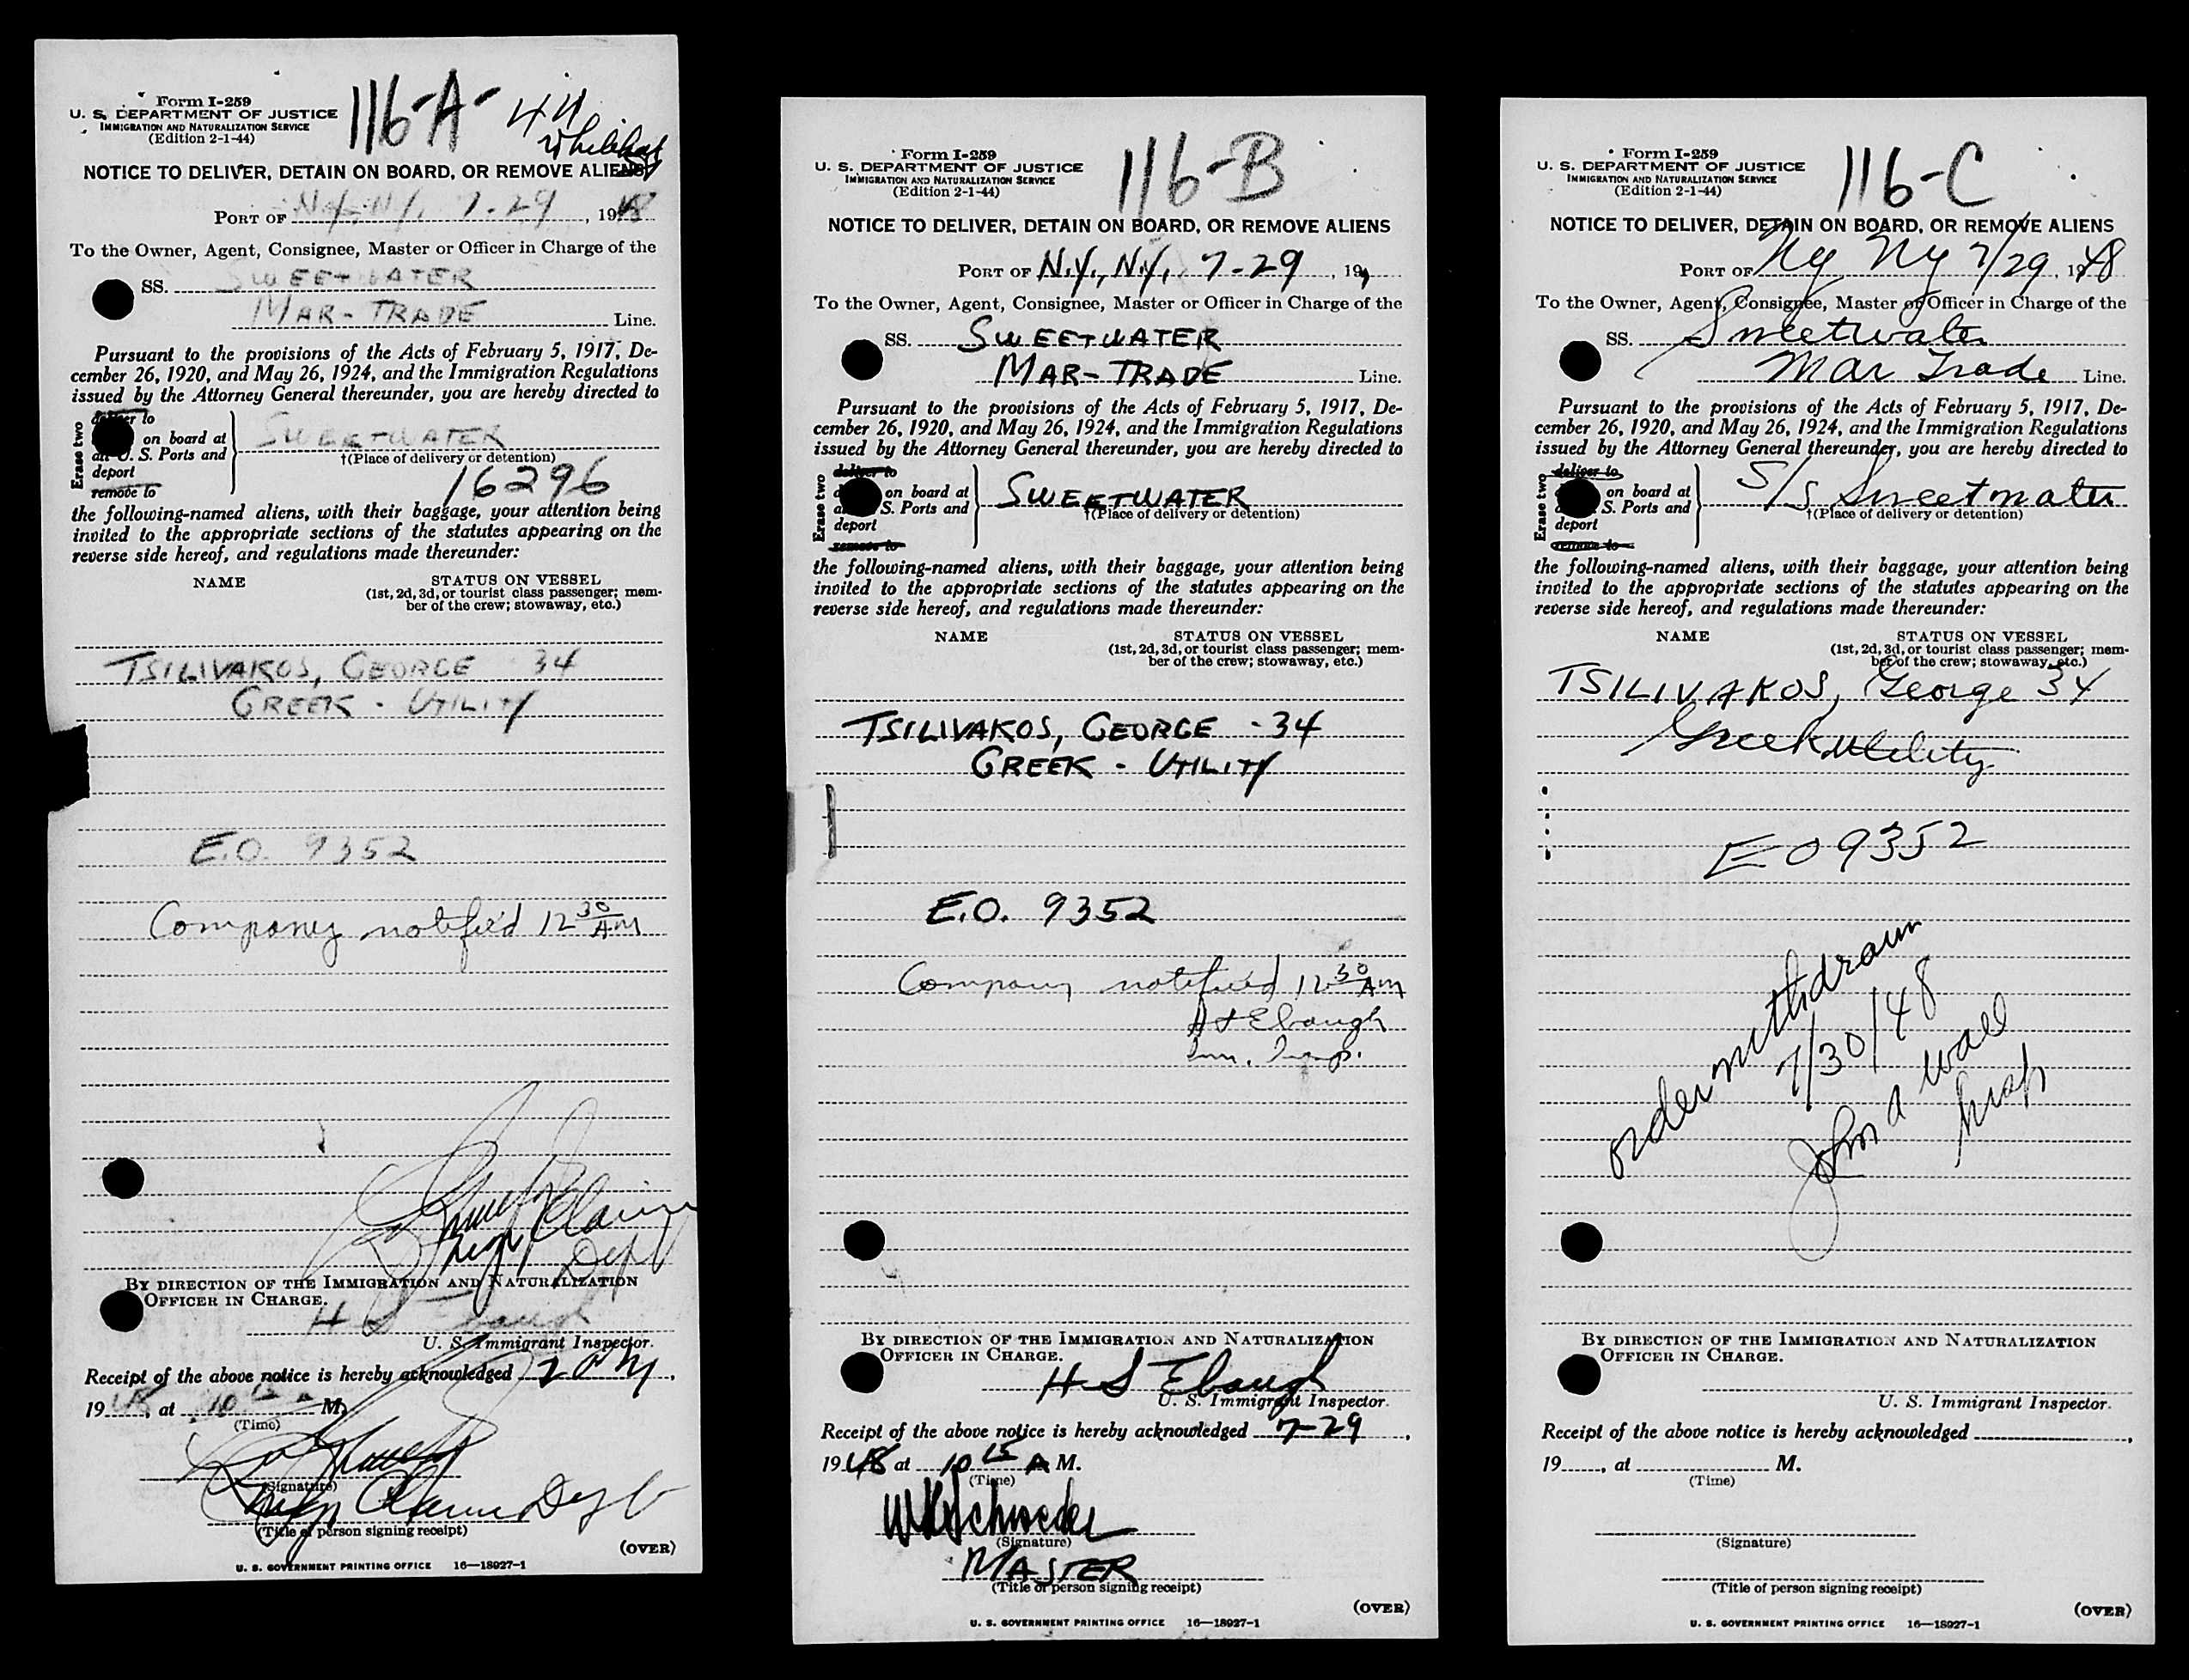 Form I-259
U. S. DEPARTMENT OF JUSTICE
IMMIGRATION AND NATURALIZATION SERVICE
(Edition 2-1-44)
116-A-
44
Whitehall
St
NOTICE TO DELIVER, DETAIN ON BOARD, OR REMOVE ALIENS
PORT OF N.Y., N.Y., 7-29, 1948
To the Owner, Agent, Consignee, Master or Officer in Charge of the
SS. SWEETWATER
MAR-TRADE Line.
Pursuant to the provisions of the Acts of February 5, 1917, De-
cember 26, 1920, and May 26, 1924, and the Immigration Regulations
issued by the Attorney General thereunder, you are hereby directed to
Erase two
deliver to
on board at
U. S. Ports and
deport
remove to
SWEETWATER
†(Place of delivery or detention)
16296
the following-named aliens, with their baggage, your attention being
invited to the appropriate sections of the statutes appearing on the
reverse side hereof, and regulations made thereunder:
NAME STATUS ON VESSEL
(1st, 2d, 3d, or tourist class passenger; mem-
ber of the crew; stowaway, etc.)
TSILIVAKOS, GEORGE 34
GREEK - UTILITY
E.O. 9352
Company notified 12 30 AM
Dept
BY DIRECTION OF THE IMMIGRATION AND NATURALIZATION
OFFICER IN CHARGE.
H S Ebaugh
U. S. Immigrant Inspector.
Receipt of the above notice is hereby acknowledged
1948, at 10 15 A M.
(Time)
(Signature)
(Title of person signing receipt)
(OVER)
U. S. GOVERNMENT PRINTING OFFICE 16—18927-1
Form I-259
U. S. DEPARTMENT OF JUSTICE
IMMIGRATION AND NATURALIZATION SERVICE
(Edition 2-1-44)
116-B
NOTICE TO DELIVER, DETAIN ON BOARD, OR REMOVE ALIENS
PORT OF N.Y., N.Y., 7-29, 19
To the Owner, Agent, Consignee, Master or Officer in Charge of the
SS. SWEETWATER
MAR-TRADE Line.
Pursuant to the provisions of the Acts of February 5, 1917, De-
cember 26, 1920, and May 26, 1924, and the Immigration Regulations
issued by the Attorney General thereunder, you are hereby directed to
Erase two
deliver to
on board at
S. Ports and
deport
remove to
SWEETWATER
†(Place of delivery or detention)
the following-named aliens, with their baggage, your attention being
invited to the appropriate sections of the statutes appearing on the
reverse side hereof, and regulations made thereunder:
NAME STATUS ON VESSEL
(1st, 2d, 3d, or tourist class passenger; mem-
ber of the crew; stowaway, etc.)
TSILIVAKOS, GEORGE - 34
GREEK - UTILITY
E.O. 9352
Company notified 12 30 AM
H S Ebaugh
Imm. Insp.
BY DIRECTION OF THE IMMIGRATION AND NATURALIZATION
OFFICER IN CHARGE.
H S Ebaugh
U. S. Immigrant Inspector.
Receipt of the above notice is hereby acknowledged 7-29,
1948 at 10 15 A M.
(Time)
Schroeder
(Signature)
MASTER
(Title of person signing receipt)
(OVER)
U. S. GOVERNMENT PRINTING OFFICE 16—18927-1
Form I-259
U. S. DEPARTMENT OF JUSTICE
IMMIGRATION AND NATURALIZATION SERVICE
(Edition 2-1-44)
116-C
NOTICE TO DELIVER, DETAIN ON BOARD, OR REMOVE ALIENS
PORT OF Ny Ny 7/29, 1948
To the Owner, Agent, Consignee, Master or Officer in Charge of the
SS. Sweetwater
Mar Trade Line.
Pursuant to the provisions of the Acts of February 5, 1917, De-
cember 26, 1920, and May 26, 1924, and the Immigration Regulations
issued by the Attorney General thereunder, you are hereby directed to
Erase two
deliver to
on board at
S. Ports and
deport
remove to
S/S Sweetwater
†(Place of delivery or detention)
the following-named aliens, with their baggage, your attention being
invited to the appropriate sections of the statutes appearing on the
reverse side hereof, and regulations made thereunder:
NAME STATUS ON VESSEL
(1st, 2d, 3d, or tourist class passenger; mem-
ber of the crew; stowaway, etc.)
TSILIVAKOS, George 34
Greek utility
EO 9352
order withdrawn
7/30/48
John A Wall
Insp
BY DIRECTION OF THE IMMIGRATION AND NATURALIZATION
OFFICER IN CHARGE.
U. S. Immigrant Inspector.
Receipt of the above notice is hereby acknowledged
19____, at ____ M.
(Time)
(Signature)
(Title of person signing receipt)
(OVER)
U. S. GOVERNMENT PRINTING OFFICE 16—18927-1